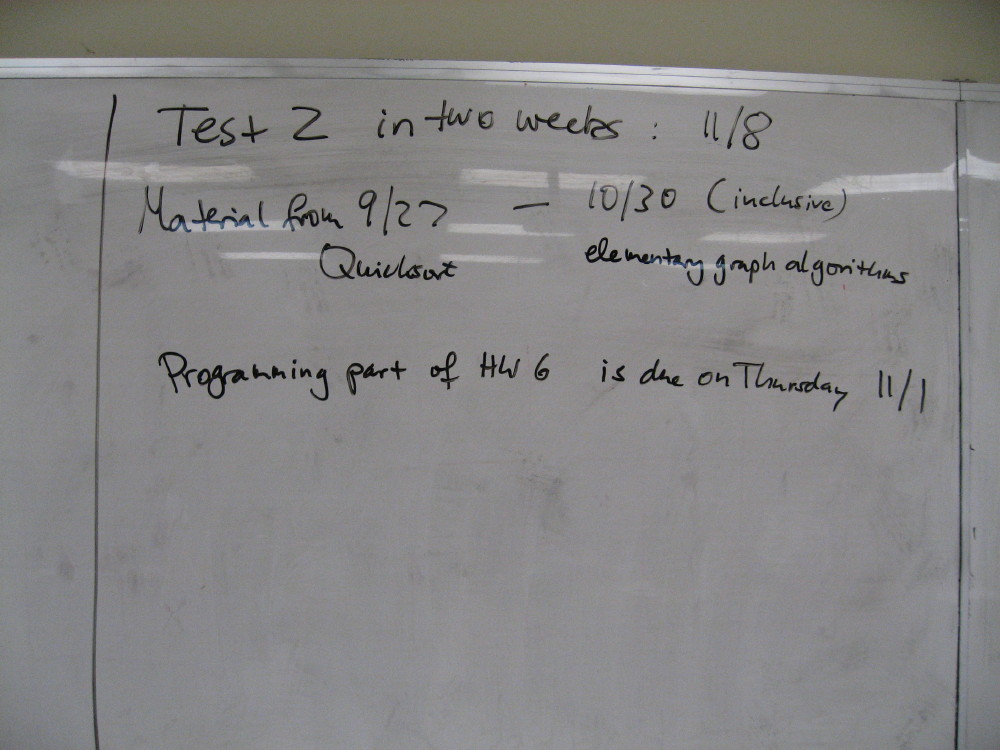 Test 2 in two weeks : 11/8
Material from 9/27 — 10/30 (inclusive)
Quicksort elementary graph algorithms
Programming part of HW 6 is due on Thursday 11/1